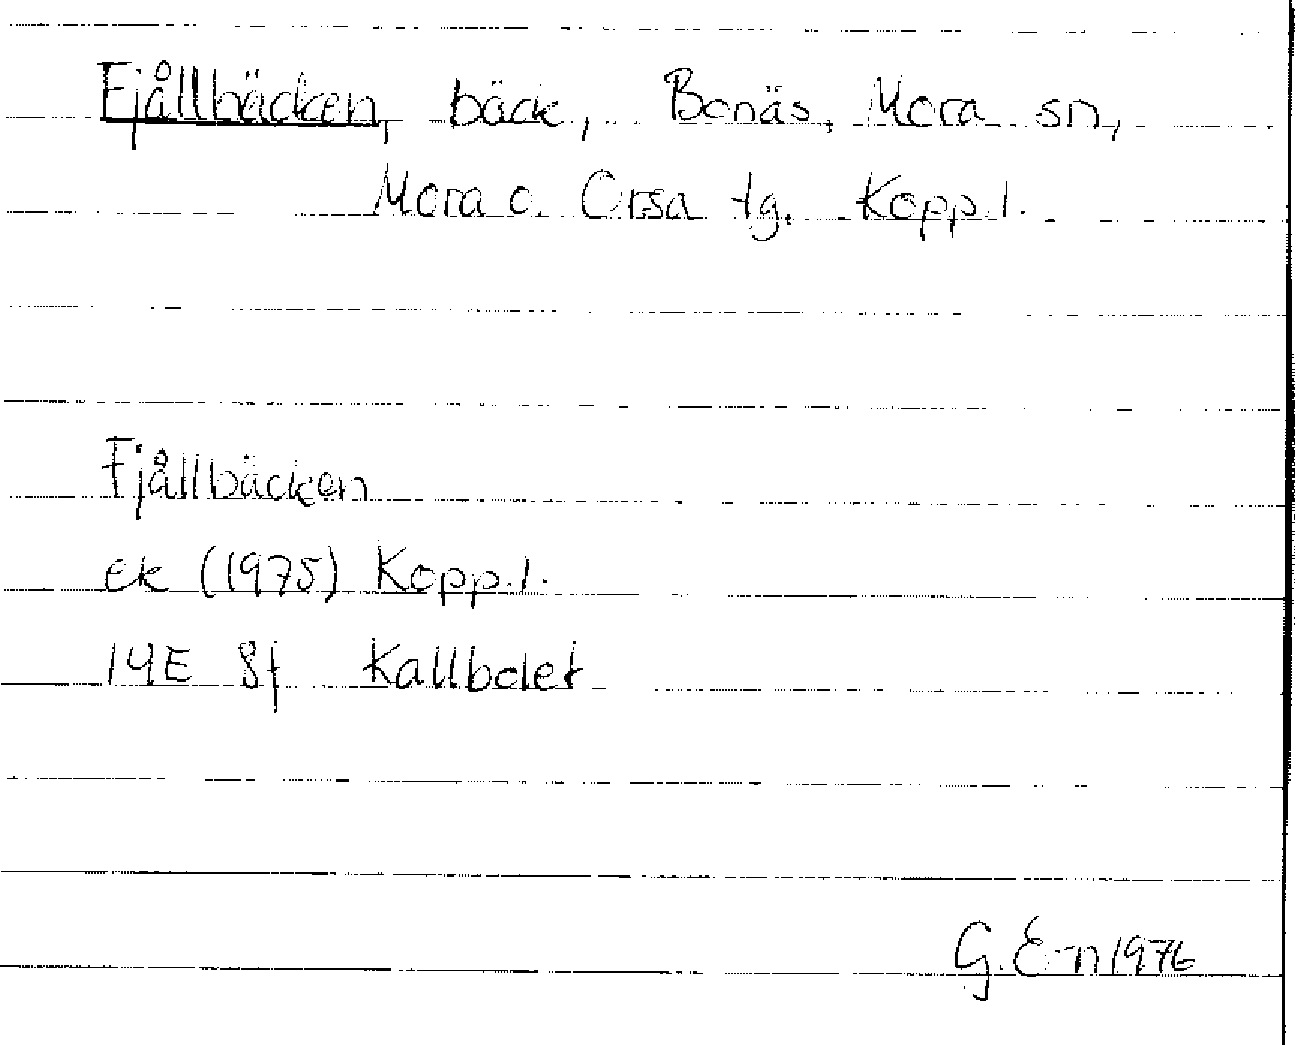 Fjållbäcken, bäck, Bonäs, Mora sn,
Mora o. Orsa tg. Kopp.l.
Fjållbäcken
ek (1975) Kopp.l.
14E 8f Kallbolet
G. E-n 1976